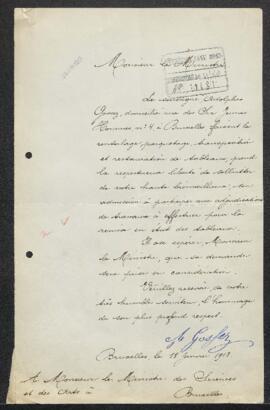 Monsieur le Ministre
Le soussigné Adolphe
domicilié rue des Six Jeunes
Hommes n° 4 à Bruxelles faisant le
rentoilage, parquetage, transposition
et restauration de tableaux, prend
la respectueuse liberté de solliciter
de votre haute bienveillance, son
admission à participer aux adjudications
de travaux à effectuer pour la
remise en état des tableaux.
Il ose espérer, Monsieur
le Ministre, que sa demande
sera prise en considération.
Veuillez recevoir de votre
très humble serviteur, l'hommage
de son plus profond respect.
Bruxelles, le 18 1913.
A Monsieur le Ministre des Sciences
et des Arts à
Bruxelles